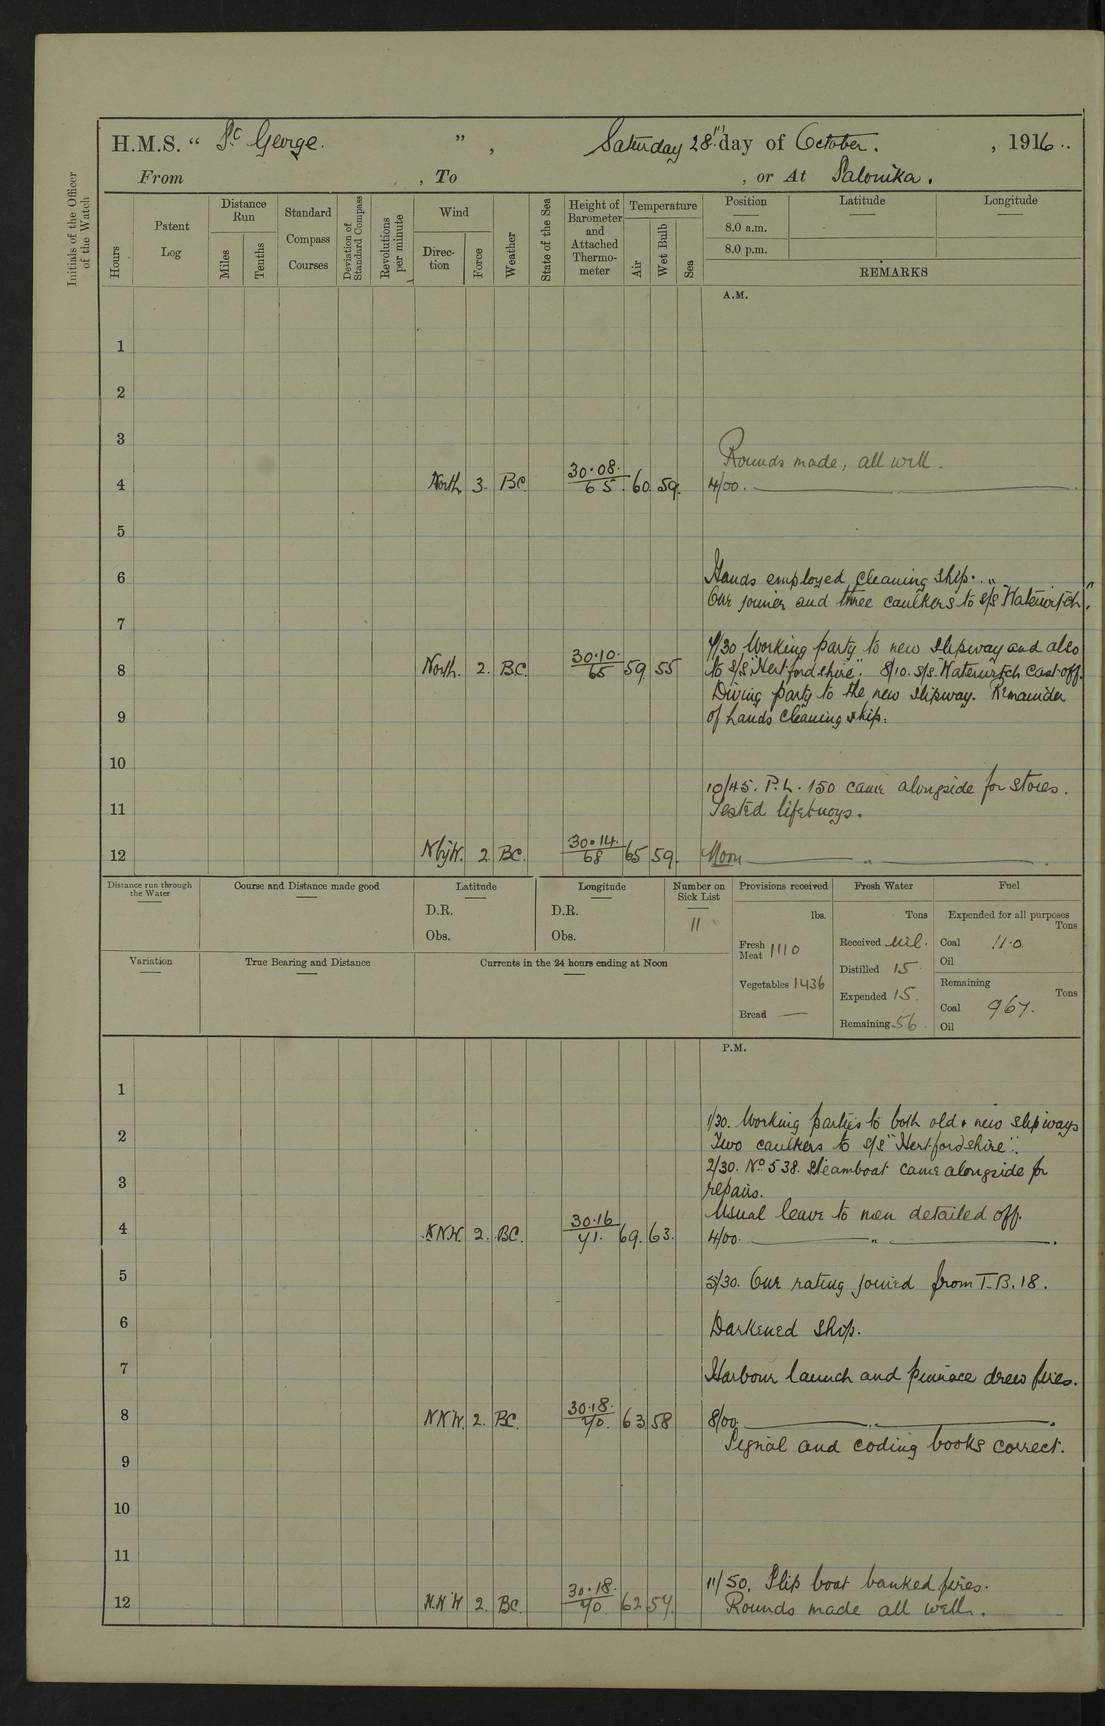 H.M.S. “ St George. ” , Saturday 28th day of October. , 1916..
From , To , or At Salonika.
Initials of the Officer of the Watch
Hours
Patent Log
Distance Run
Miles
Tenths
Standard Compass Courses
Deviation of Standard Compass
Revolutions per minute
Wind
Direc- tion
Force
Weather
State of the Sea
Height of Barometer and Attached Thermo- meter
Temperature
Air
Wet Bulb
Sea
Position Latitude Longitude
8.0 a.m.
8.0 p.m.
REMARKS
A.M.
1
2
3
Rounds made, all well.
4 North 3. BC. 30.08./65. 60. 59. 4/00.
5
6 Hands employed cleaning ship. „
One joiner and three caulkers to s/s "Waterwitch".
7
7/30 Working party to new slipway and also
8 North. 2. BC. 30.10./65 59. 55 to s/s "Hertfordshire". 8/10. s/s. Waterwitch cast off.
Diving party to the new slipway. Remainder
9 of hands cleaning ship.
10
10/45. P.L. 150 came alongside for stores.
11 Tested lifebuoys.
12 NbyW. 2. BC. 30.14./68 65 59. Noon „
Distance run through the Water
Course and Distance made good
Latitude
D.R.
Obs.
Longitude
D.R.
Obs.
Number on Sick List
11
Provisions received
lbs.
Fresh Meat 1110
Vegetables 1436
Bread —
Fresh Water
Tons
Received Nil.
Distilled 15
Expended 15.
Remaining 56.
Fuel
Expended for all purposes
Tons
Coal 11.0
Oil
Remaining
Tons
Coal 967.
Oil
Variation
True Bearing and Distance
Currents in the 24 hours ending at Noon
P.M.
1
1/30. Working parties to both old & new slipways
2 Two caulkers to s/s "Hertfordshire".
2/30. No 538. Steamboat came alongside for
3 repairs.
Usual leave to men detailed off.
4 NNW. 2. BC. 30.16/71. 69. 63. 4/00. „
5 5/30. One rating joined from T.B. 18.
6 Darkened ship.
7 Harbour launch and pinnace drew fires.
8 NNW. 2. BC. 30.18./70. 63 58 8/00.
Signal and coding books correct.
9
10
11
11/50. Slip boat banked fires.
12 N.N.W 2. BC. 30.18./70. 62 57. Rounds made all well.